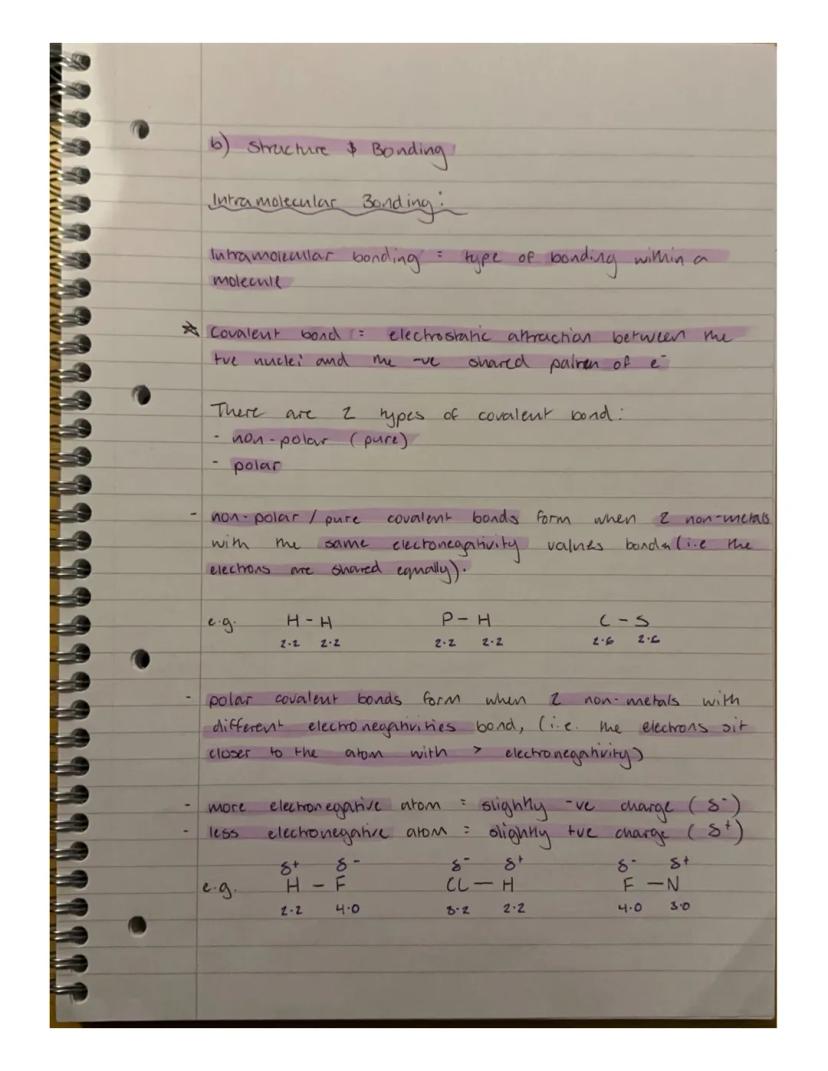 b) Structure & Bonding
Intramolecular Bonding:
Intramolecular bonding = type of bonding within a
molecule
* Covalent bond = electrostatic attraction between the
+ve nuclei and the -ve shared pair of e⁻
There are 2 types of covalent bond:
- non-polar (pure)
- polar
- non-polar / pure covalent bonds form when 2 non-metals
with the same electronegativity values bond (i.e the
electrons are shared equally).
e.g. H - H P - H C - S
2.2 2.2 2.2 2.2 2.6 2.6
- polar covalent bonds form when 2 non-metals with
different electronegativities bond, (i.e. the electrons sit
closer to the atom with > electronegativity)
- more electronegative atom = slightly -ve charge (δ⁻)
- less electronegative atom = slightly +ve charge (δ⁺)
δ+ δ- δ- δ+ δ- δ+
e.g. H - F CL - H F - N
2.2 4.0 3.2 2.2 4.0 3.0